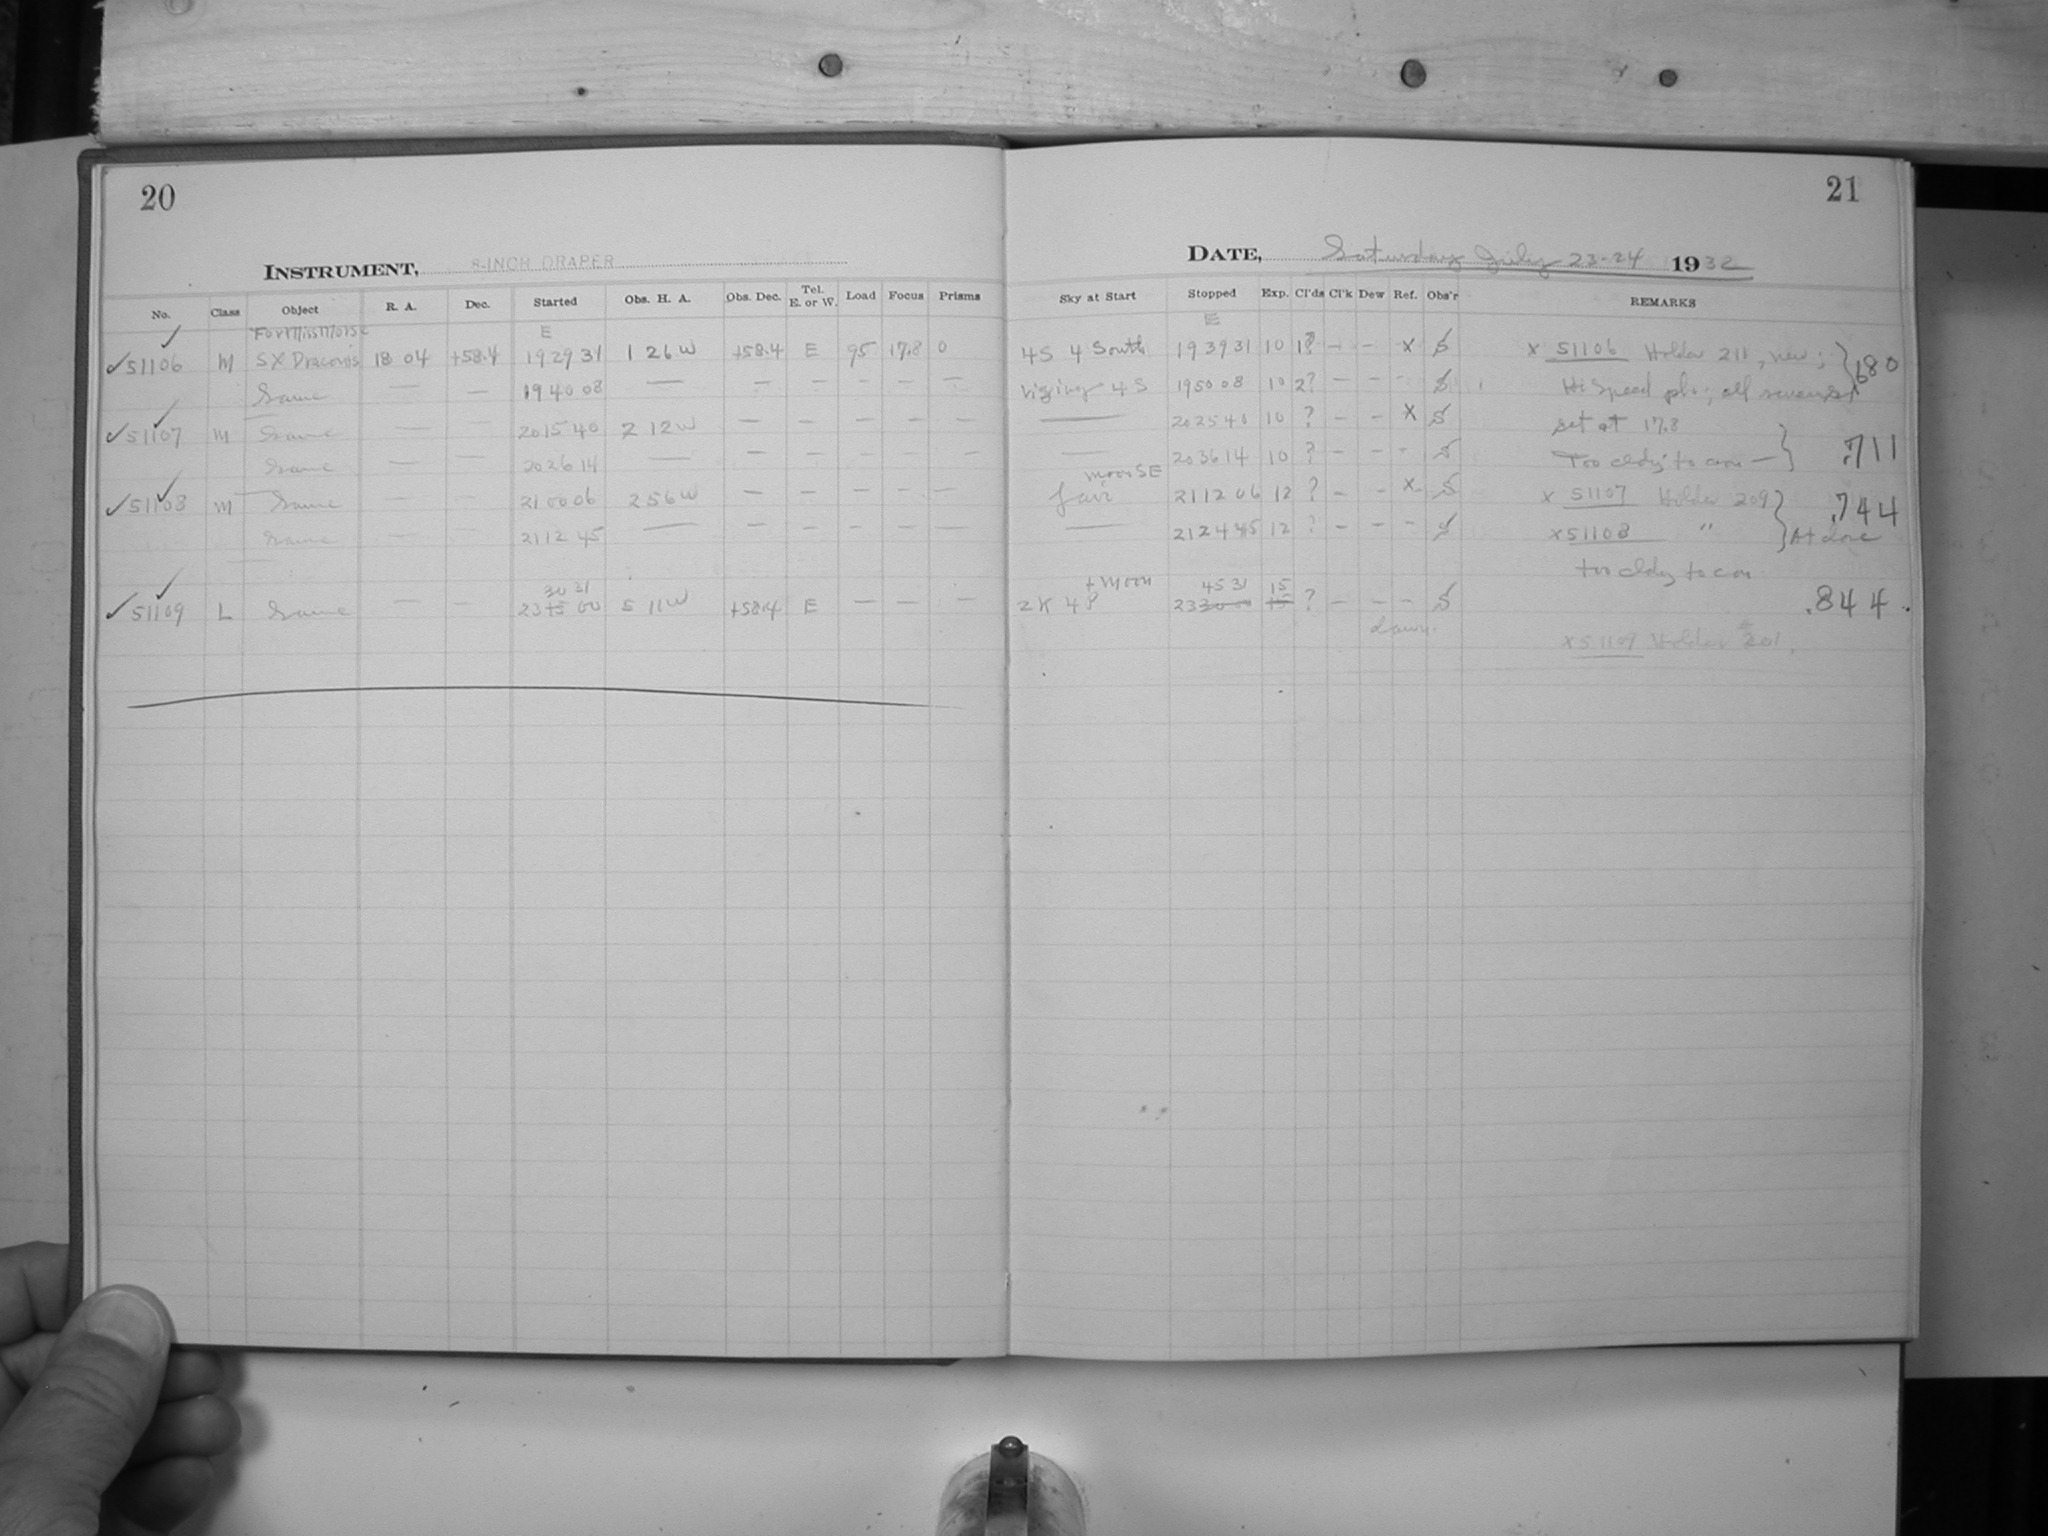 20
INSTRUMENT, 8-INCH DRAPER
No. Class Object R. A. Dec. Started Obs. H. A. Obs. Dec. Tel. E. or W. Load Focus Prisms
For Miss Morse E
51106 M SX Draconis 18 04 +58.4 19 29 31 1 26 W +58.4 E 95 17.8 0
Same — — 19 40 08 — — — — — —
51107 M Same — — 20 15 40 2 12 W — — — — —
Same — — 20 26 14 — — — — — —
51108 M Same — — 21 00 06 2 56 W — — — — —
Same — 21 12 45 — — — — — —
30 31
51109 L Same — — 23 15 00 5 11 W +58.4 E — — —
21
DATE, Saturday July 23-24 1932
Sky at Start Stopped Exp. Cl'ds Cl'k Dew Ref. Obs'r REMARKS
E
4S 4 South 19 39 31 10 1? — — X S X 51106 Holder 211, new; .680
4S 19 50 08 10 2? — — - S Hi Speed
— 20 25 40 10 ? — — X S set at 17.8
— 20 36 14 10 ? — — - S Too cldy to con — .711
moon SE
fair 21 12 06 12 ? — — X S X 51107 Holder 209 .744
— 21 24 45 12 ? — — - S X 51108 " At dome
too cldy to con
+ moon 45 31 15
2K 4P 23 30 00 15 ? — — - S .844
dawn.
X 51109 Holder #201.